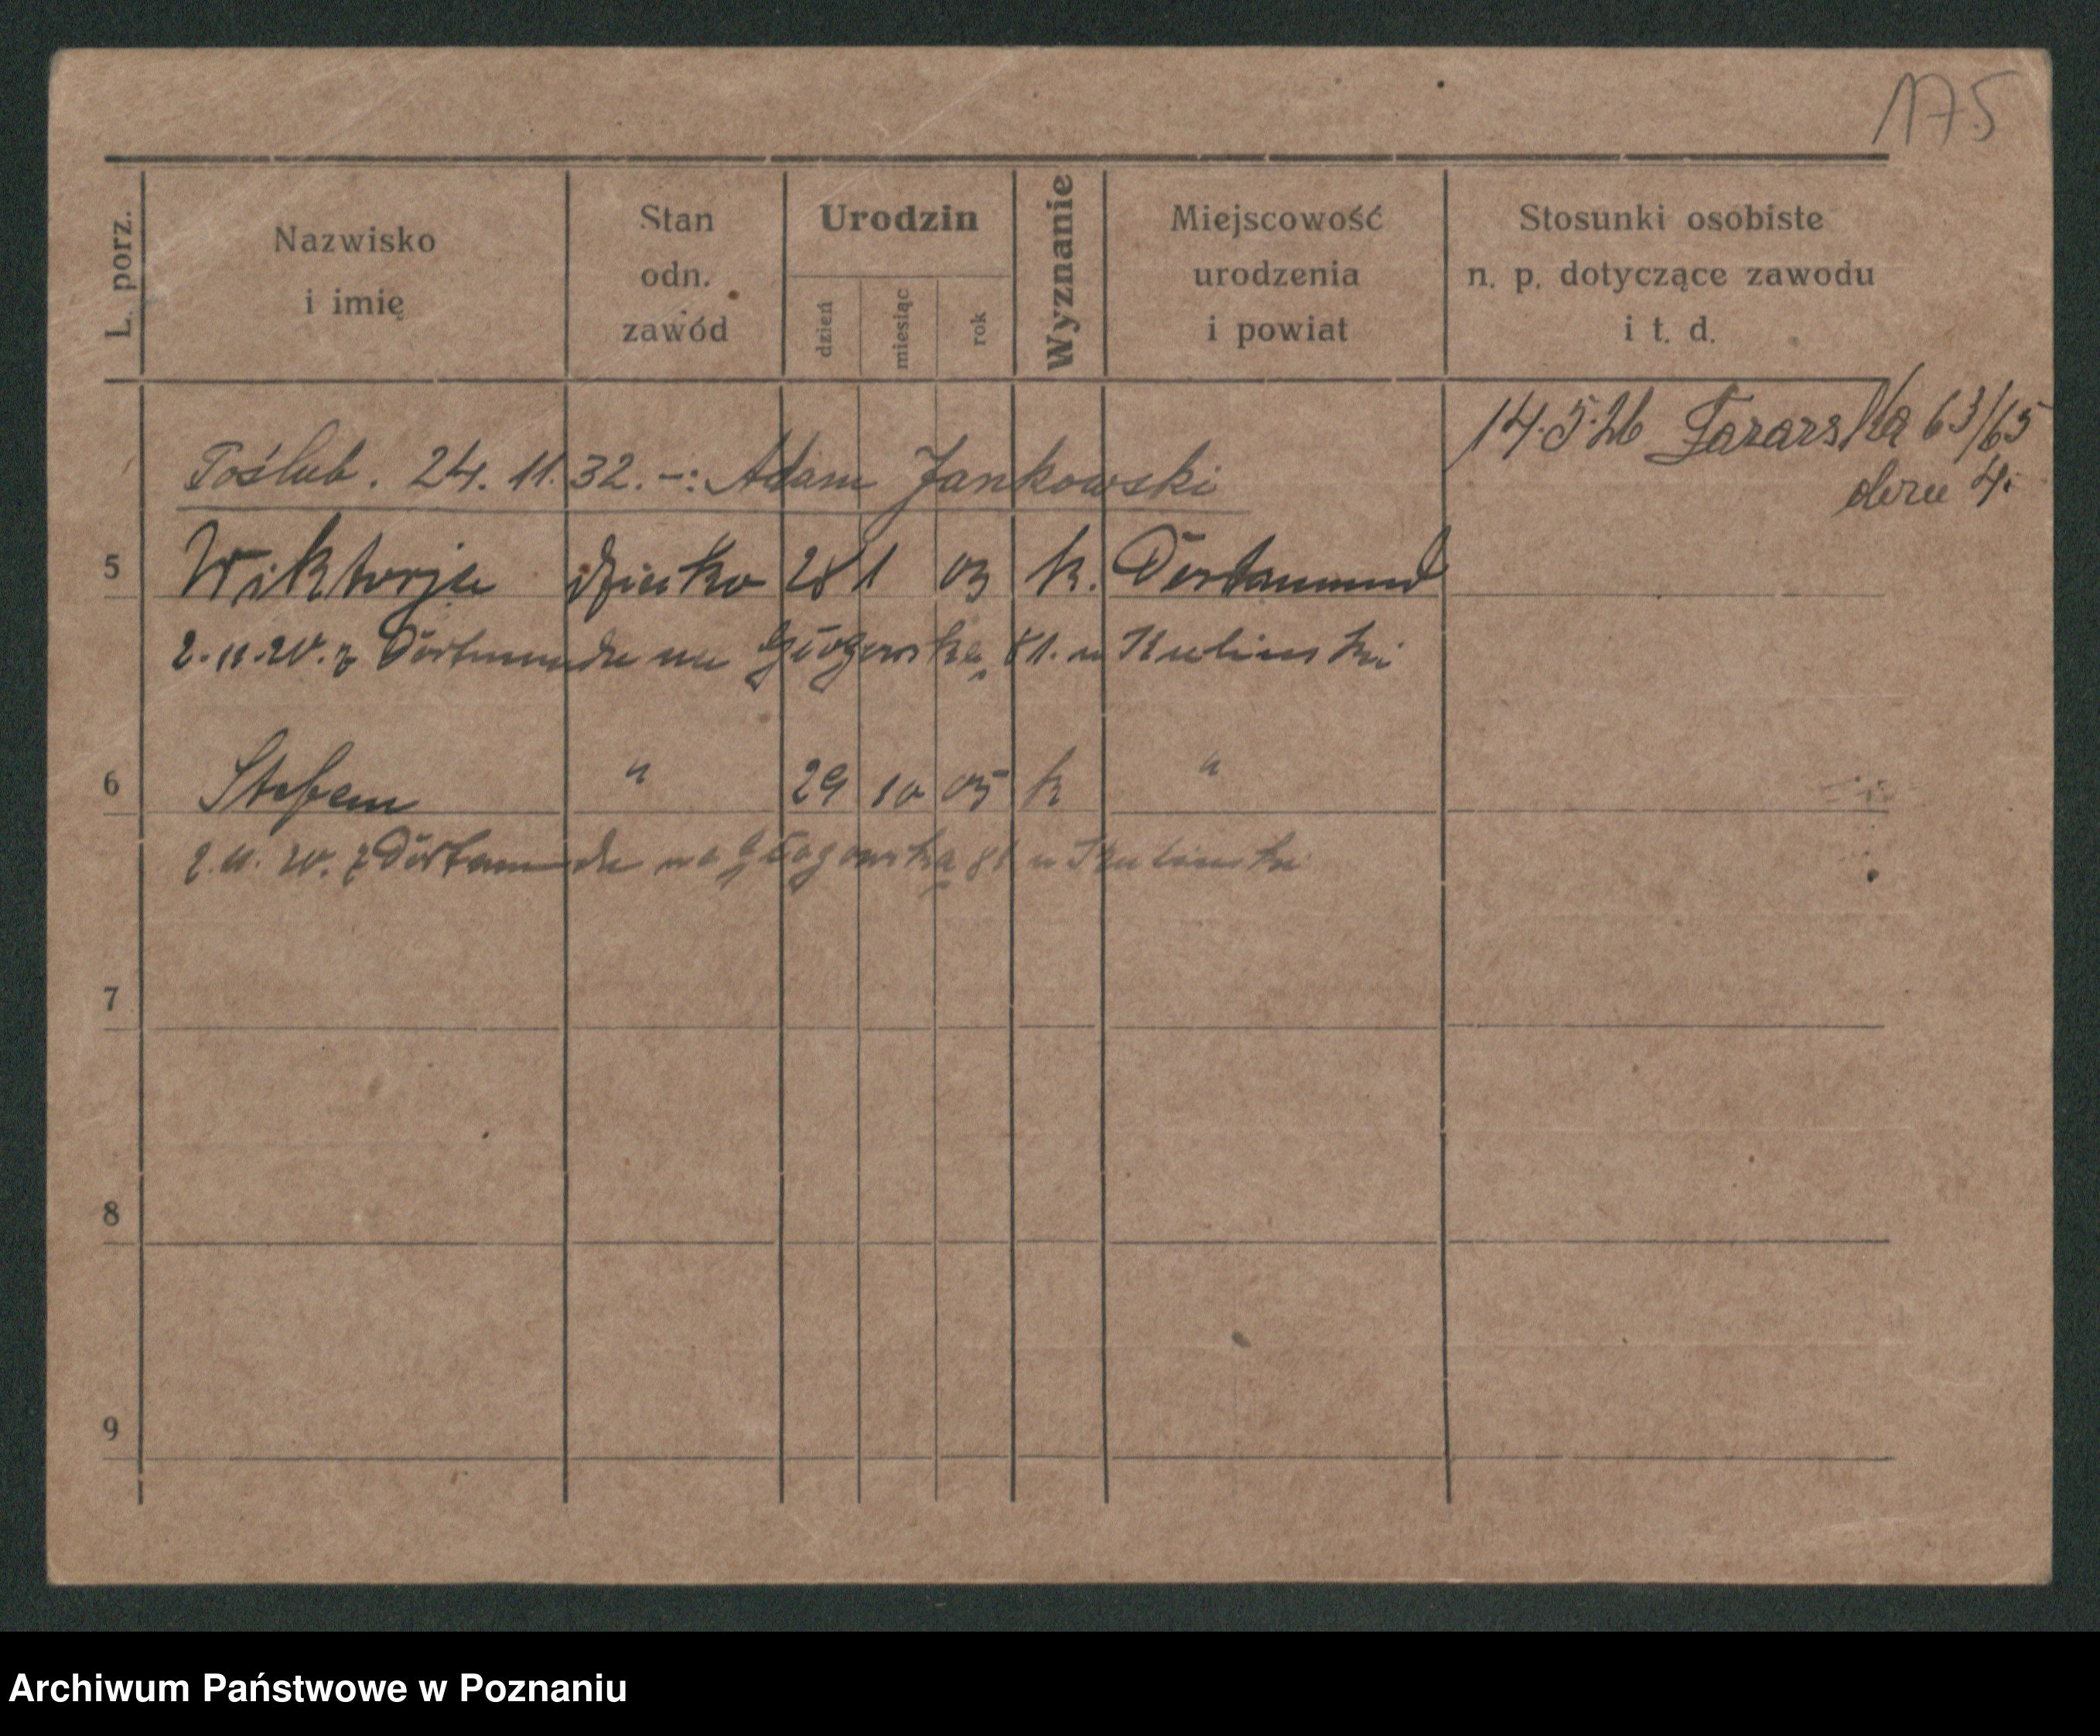 175
L. porz.
Nazwisko
i imię
Stan
odn.
zawód
Urodzin
dzień
miesiąc
rok
Wyznanie
Miejscowość
urodzenia
i powiat
Stosunki osobiste
n. p. dotyczące zawodu
i t. d.
14.5.26 63/65
4.
Poślub. 24.11.32. -: Adam Jankowski
5 Wiktorja dziecko 28 1 03 k. Dortmund
2.11.20. z Dortmundu na Głogowską 81. u
6 Stefan " 29 10 05 k "
2.11.20. z Dortmundu na Głogowską 81 u
7
8
9
Archiwum Państwowe w Poznaniu